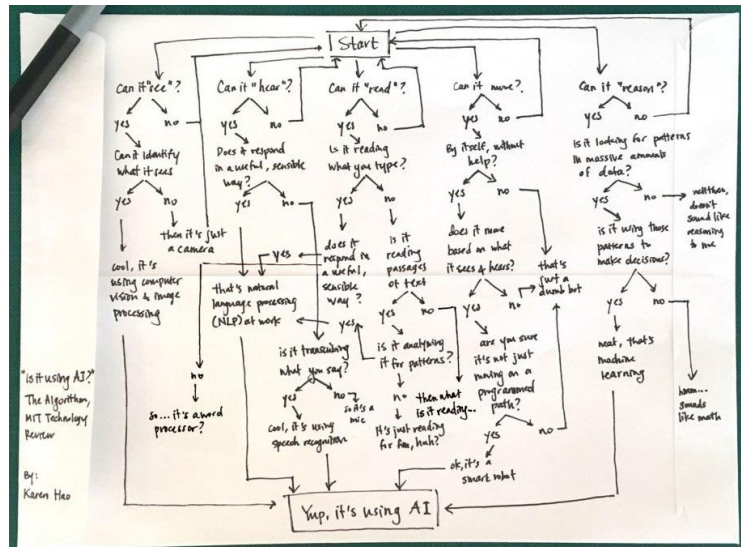 Start
Can it "see"?
yes
no
Can it identify
what it sees
yes
no
then it's just
a camera
cool, it's
using computer
vision & image
processing
Can it "hear"?
yes
no
Does it respond
in a useful, sensible
way?
yes
no
that's natural
language processing
(NLP) at work
is it transcribing
what you say?
yes
no
so it's a
mic
cool, it's using
speech recognition
Can it "read"?
yes
no
Is it reading
what you type?
yes
no
does it
respond in
a useful,
sensible
way?
yes
no
so... it's a word
processor?
is it
reading
passages
of text
yes
no
is it analyzing
it for patterns?
no
then what
is it reading...
It's just reading
for fun, huh?
Can it move?
yes
no
By itself, without
help?
yes
no
does it move
based on what
it sees & hears?
yes
no
that's
just a
dumb bot
are you sure
it's not just
moving on a
programmed
path?
yes
no
ok, it's a
smart robot
Can it "reason"?
yes
no
Is it looking for patterns
in massive amounts
of data?
yes
no
doesn't
sound like
reasoning
to me
is it using those
patterns to
make decisions?
yes
no
neat, that's
machine
learning
hmm...
sounds
like math
Yup, it's using AI
"Is it using AI?"
The Algorithm,
MIT Technology
Review
By:
Karen Hao